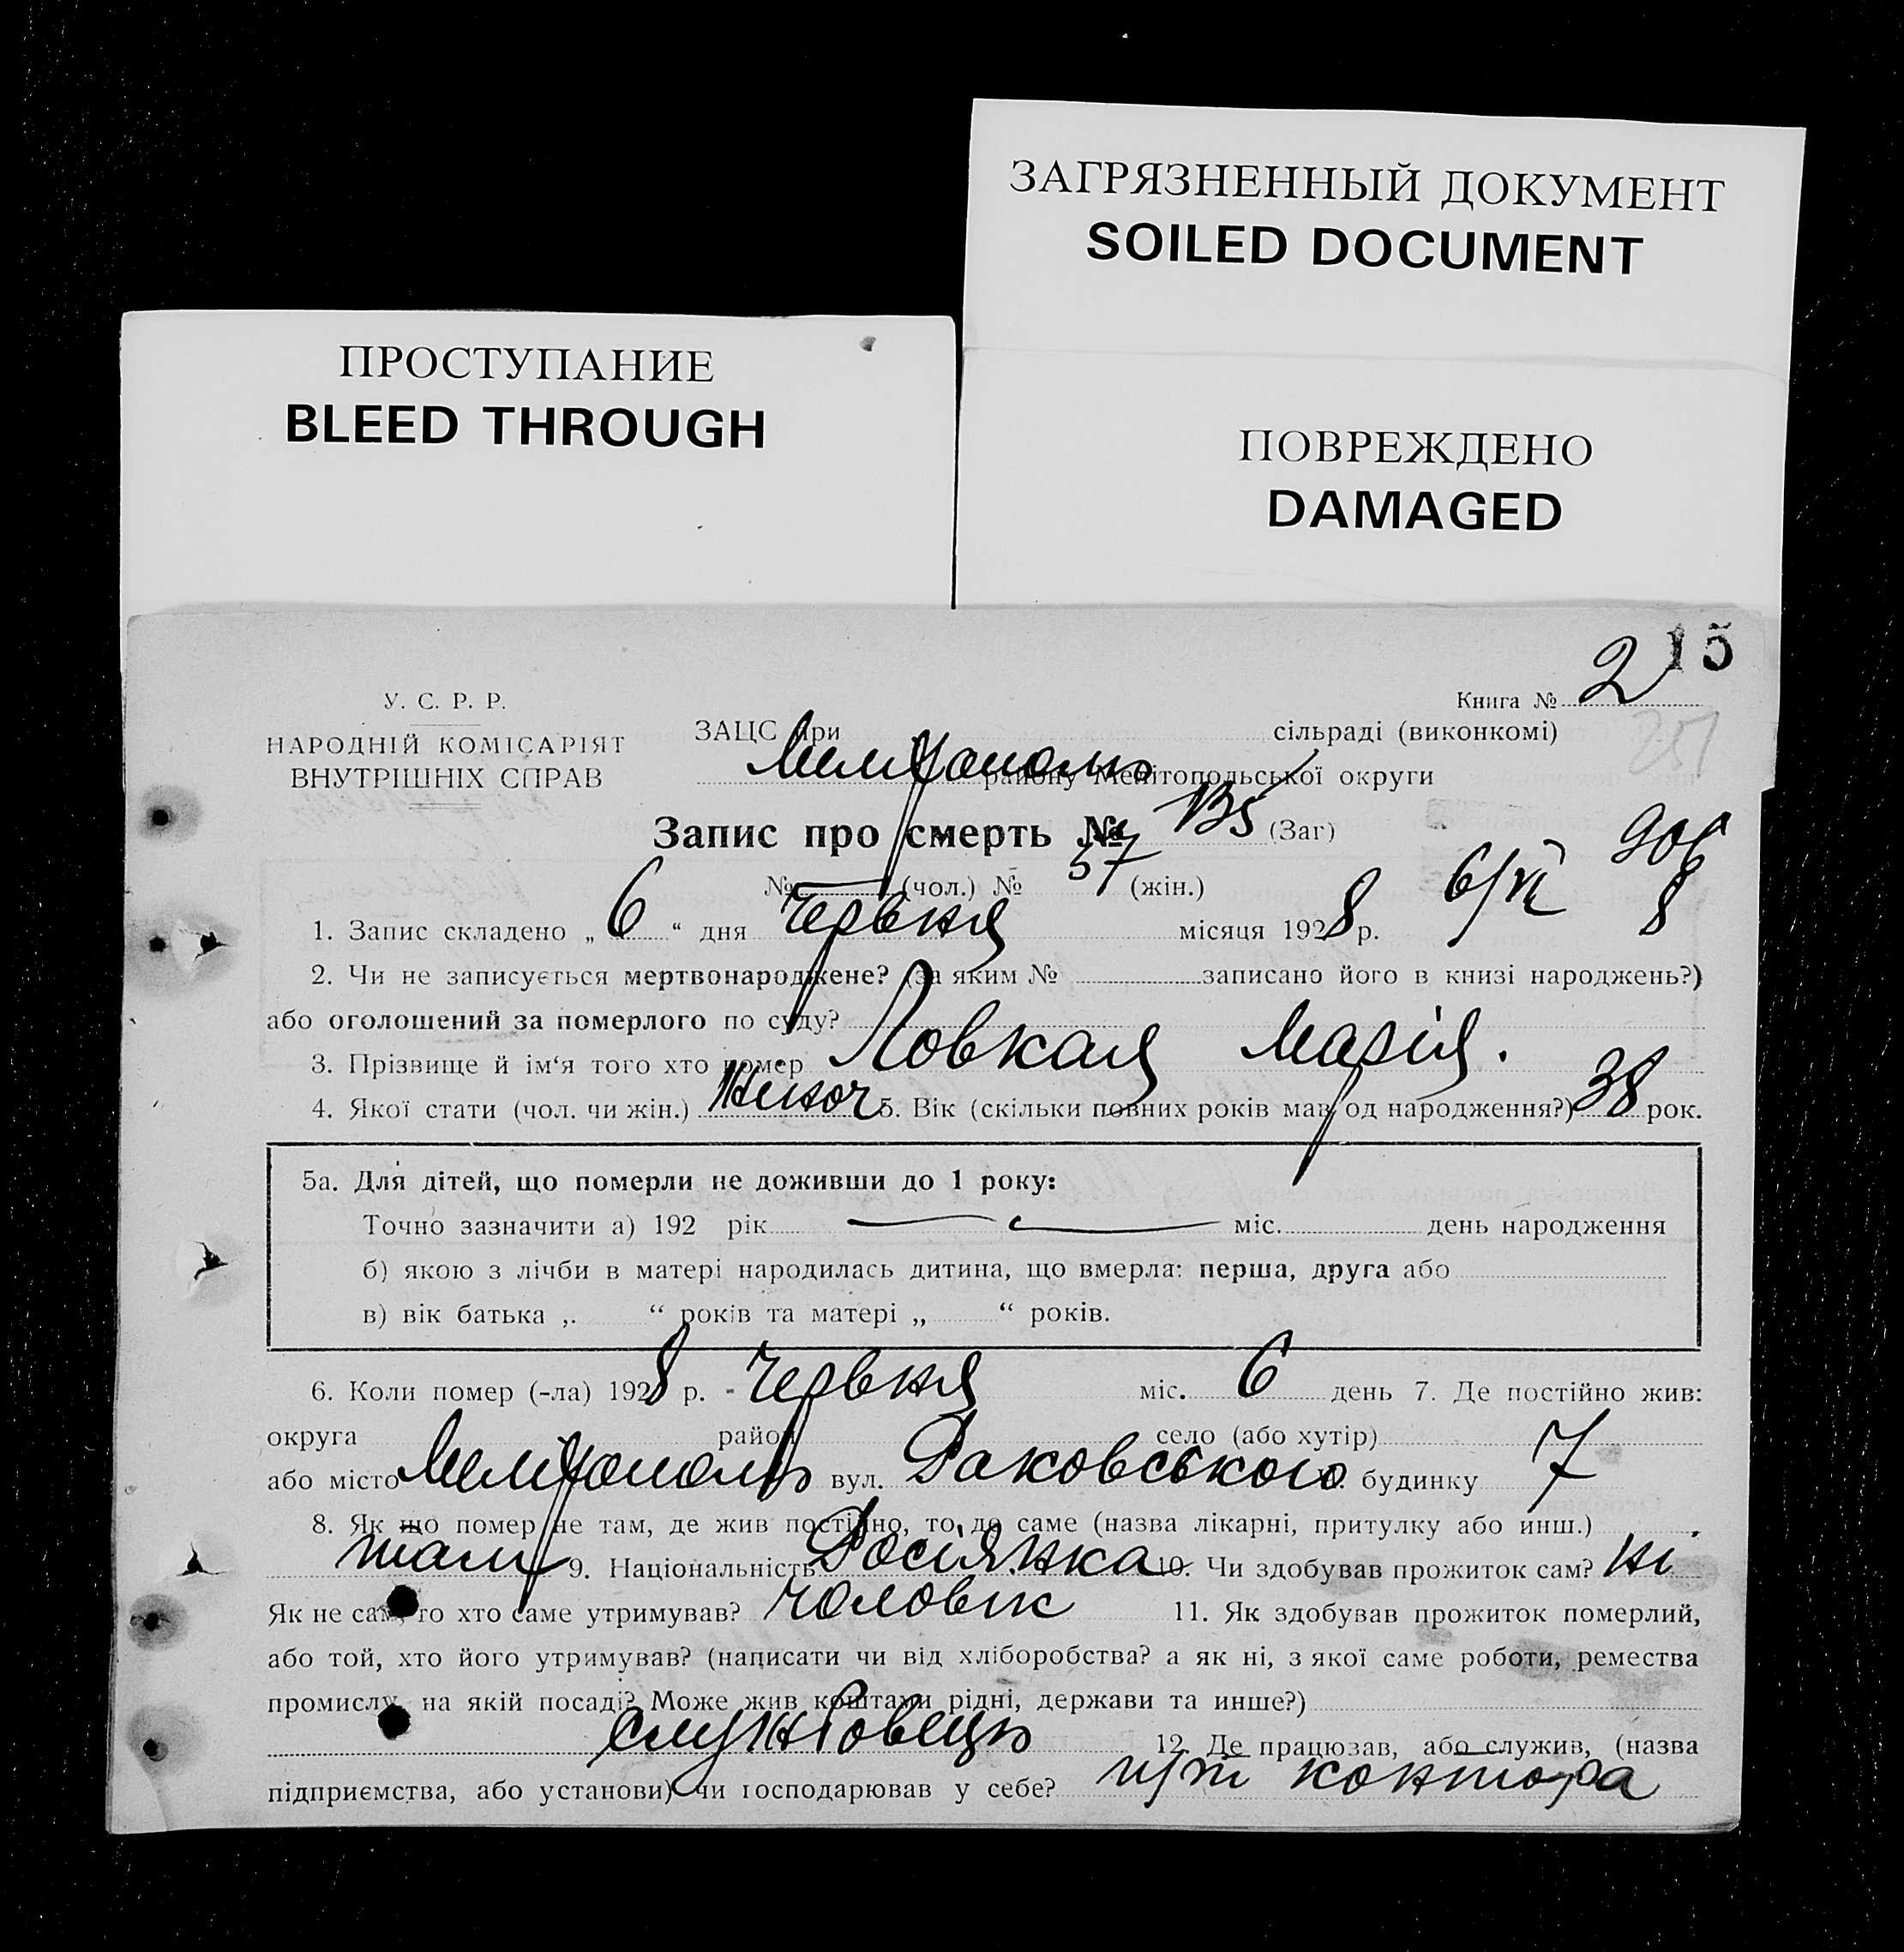 ЗАГРЯЗНЕННЫЙ ДОКУМЕНТ
SOILED DOCUMENT
ПРОСТУПАНИЕ
BLEED THROUGH
ПОВРЕЖДЕНО
DAMAGED
15
У. С. Р. Р.
НАРОДНІЙ КОМІСАРІЯТ
ВНУТРІШНІХ СПРАВ
Книга № 2
251
ЗАЦС при сільраді (виконкомі)
Мелітополь району Мелітопольської округи
Запис про смерть № (Заг)
№ — (чол.) № 57 (жін.)
6/VI 8
1. Запис складено „ 6 “ дня Червня місяця 1928 р.
2. Чи не записується мертвонароджене? (за яким № записано його в книзі народжень?)
або оголошений за померлого по суду?
3. Прізвище й ім‘я того хто помер Ловкая Марія.
4. Якої стати (чол. чи жін.) жіноч 5. Вік (скільки повних років мав од народження?) 38 рок.
5а. Для дітей, що померли не доживши до 1 року:
Точно зазначити а) 192 рік — міс. день народження
б) якою з лічби в матері народилась дитина, що вмерла: перша, друга або
в) вік батька „ “ років та матері „ “ років.
6. Коли помер (-ла) 1928 р. Червня міс. 6 день 7. Де постійно жив:
округа район село (або хутір)
або місто Мелітополь вул. Раковського будинку 7
8. Як що помер не там, де жив постійно, то де саме (назва лікарні, притулку або инш.)
там 9. Національність Росіянка 10. Чи здобував прожиток сам? ні
Як не сам, то хто саме утримував? чоловік 11. Як здобував прожиток померлий,
або той, хто його утримував? (написати чи від хліборобства? а як ні, з якої саме роботи, ремества
промислу, на якій посаді? Може жив коштами рідні, держави та инше?)
службовець 12. Де працював, або служив, (назва
підприємства, або установи) чи господарював у себе? контора